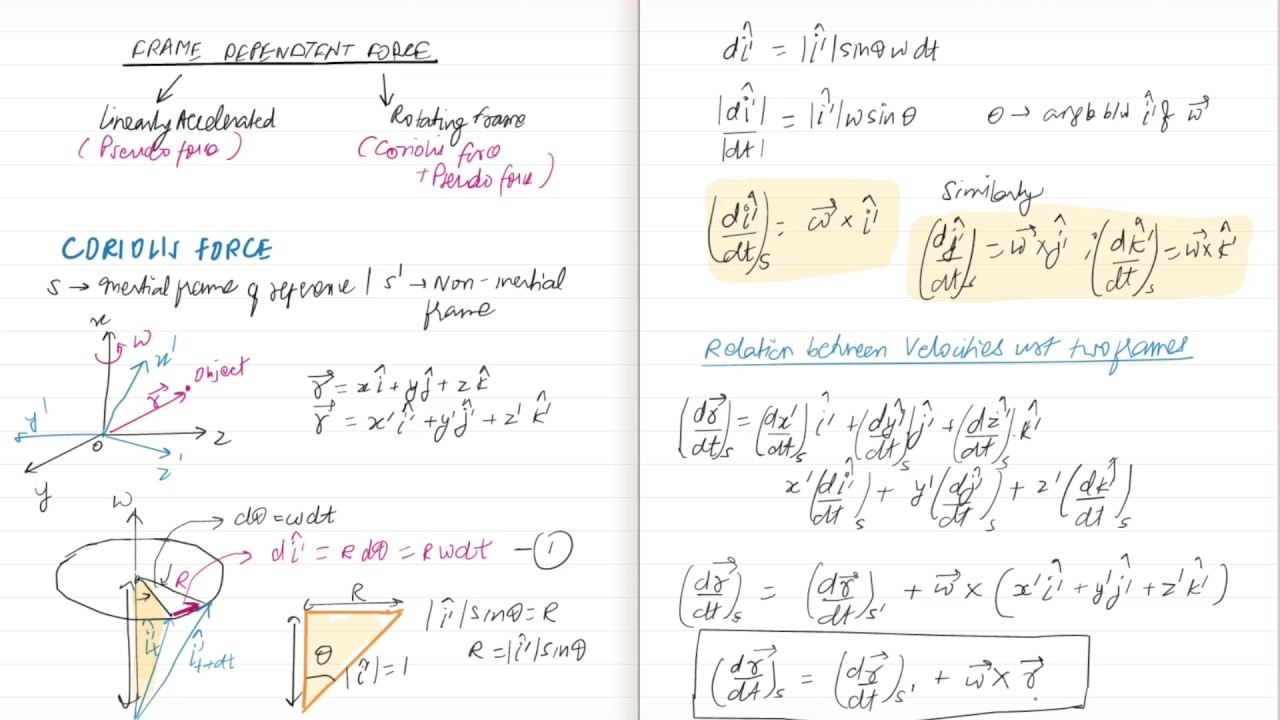 FRAME DEPENDENT FORCE
Linearly Accelerated
(Pseudo force)
Rotating frame
(Coriolis force
+ Pseudo force)
CORIOLIS FORCE
S → Inertial frame of reference / S' → Non-inertial
frame
x
ω
x'
Object
r⃗
y'
O
z
z'
y
r⃗ = x î + y ĵ + z k̂
r⃗ = x' î' + y' ĵ' + z' k̂'
ω
dΦ = ωdt
dî' = R dΦ = R ωdt —①
R
î't
î't+dt
R
θ
|î'| = 1
|î'| sinθ = R
R = |î'| sinθ
dî' = |î'| sinθ ω dt
|dî'|/|dt| = |î'| ω sinθ θ → angle b/w î' & ω⃗
Similarly
(dî'/dt)s = ω⃗ × î' (dĵ'/dt)s = ω⃗ × ĵ' ; (dk̂'/dt)s = ω⃗ × k̂'
Relation between Velocities wrt two frames
(dr⃗/dt)s = (dx'/dt)s î' + (dy'/dt)s ĵ' + (dz'/dt)s k̂'
x' (dî'/dt)s + y' (dĵ'/dt)s + z' (dk̂'/dt)s
(dr⃗/dt)s = (dr⃗/dt)s' + ω⃗ × (x' î' + y' ĵ' + z' k̂')
(dr⃗/dt)s = (dr⃗/dt)s' + ω⃗ × r⃗